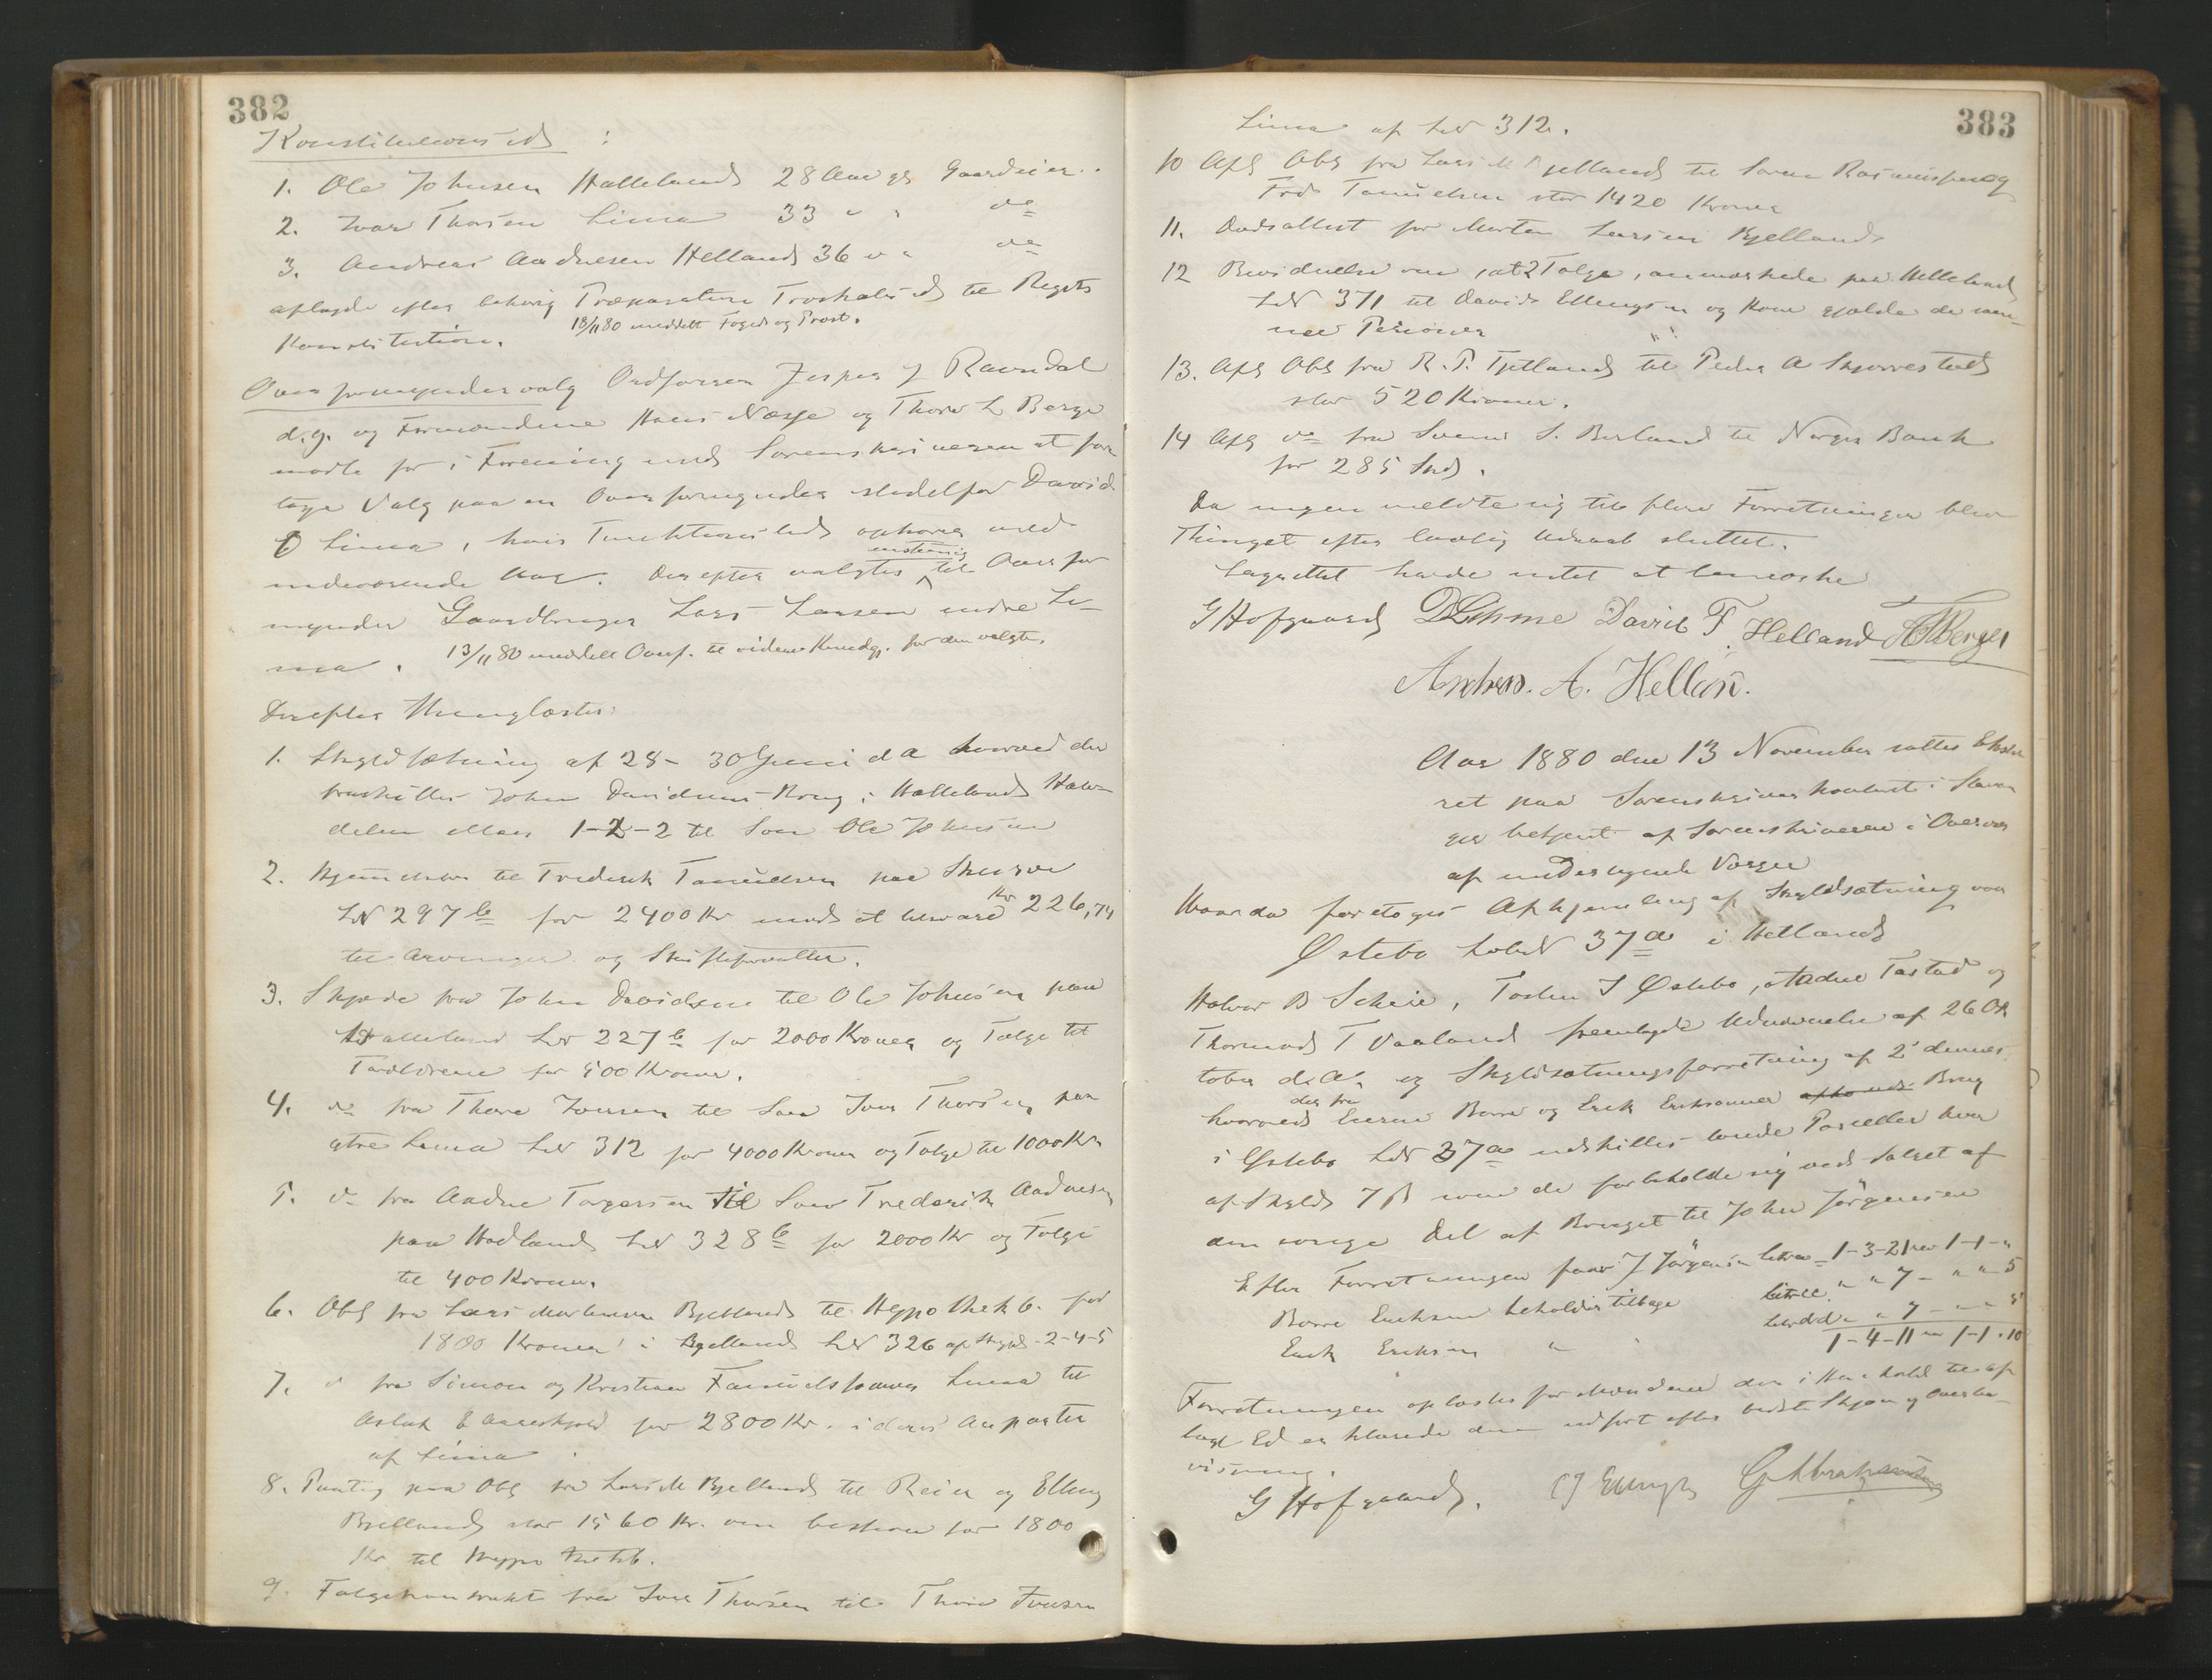 382
Konstitutionsed :
1. Ole Johnsen Halleland 28 Aar gl Gaardeier.
2. Ivar Thorsen Lima 33 " " do
3. Andreas Aadnesen Helland 36 " " do
aflagde efter behørig Præparation Troskabsed til Rigets
Konstitution. 13/11 80 meddelt Foged og Provst.
Overformyndervalg Ordføreren Jesper J Ravndal
d.y. og Formændene Hans Næsse og Thore L Berge
mødte for i Forening med Sorenskriveren at fore
tage Valg paa en Overformynder istedetfor David
O Lima, hvis Funktionstid ophører med
enstemmig
nuværende Aar. Derefter valgtes til Overfor
mynder Gaardbruger Lars Larsen indre Li-
ma. 13/11 80 meddelt Overf. til videre Kundg. for den valgte.
Derefter thinglæstes:
1. Skyldsætning af 28- 30 Juni d A hvorved der
fraskilles John Davidsens Brug i Halleland Hoved
delen 1-2-2 til Søn Ole Johnsen
2. Hjemmelsbrev til Frederik Samuelsen paa
LN 297 b for 2400 Kr mod at Kr 226,74
til Arvinger og Skifteforvalter.
3. Skjøde fra John Davidsen til Ole Johnsen paa
Halleland LN 227 b for 2000 Kroner og Folge til
Foreldrene for 500 Kroner.
4. do fra Thore Iversen til Søn Iver Thorsen paa
ytre Lima LN 312 for 4000 Kroner og Folge til 1000 Kr
5. do fra Aadne Torgersen til Søn Frederik Aadnesen
paa Hodland LN 328 b for 2000 Kr og Folge
til 400 Kroner.
6. Obl fra Lars Mortensen Bjelland til Hypothekb. for
1800 Kroner i Bjelland LN 326 af Skyld -2-4-5
7. do fra Simon og Kristian Samuelssønner Lima til
Aslak E for 2800 Kr. i deres Anparter
af Lima
8. Paateg paa Obl fra Lars M Bjelland til Reier og Elling
Bjelland stor 1560 Kr. om for 1800
Kr til Hypothekb.
9. Folgekontrakt fra Iver Thorsen til Thore Iversen
383
Lima af LN 312.
10 Afl Obl fra Lars M Bjelland til Søren Rasmussen og
Frd Samuelsen stor 1420 Kroner
11. Dødsattest for Morten Larsen Bjelland
12 Bevidnelse om, at 2 Folge, anmærkede paa Helleland
LN 371 til David Ellingsen og Kone gjælde de sam-
me Personer
13. Afl Obl fra R. P. Tjetland til Peder A Skjørrestad
stor 520 Kroner.
14 Afl do fra Svend S. Berland til Norges Bank
for 285 Spd.
Da ingen meldte sig til flere Forretninger blev
Thinget efter lovlig Udraab sluttet.
Lagrettet havde intet at bemærke
G Hofgaard D Lehme David F. Helland T L Berge
Andreas. A. Helland.
Aar 1880 den 13 November sattes Extra
ret paa Sorenskriverkontoret i Stavan
ger betjent af Sorenskriveren i Overvær
af undertegnede Vidner
Hvorda foretoges Afhjemling af Skyldsætning paa
Østebø Løbe N 37 a i Hetland
Halvor B Scheie, Torsten I Østebø, Aadne Tastad og
Thormod T Vaaland fremlagde Udnævnelse af 26 Ok
tober d. A. og Skyldsætningsforretning af 2 dennes
der fra
hvorved Børre og Erik Erikssønner Brug
i Østebø LN 37 a udskilles tvende Parceller hver
af Skyld 7 ß som de forbeholde sig ved Salget af
den øvrige Del af Bruget til John Jörgensen
Efter Forretningen faar J Jörgensen 1-3-21 1-1-"
Børre Eriksen beholder tilbage " " 7 - " " 5
Erik Eriksen " " " 7 - " " 5
1-4-11 1-1-10
Forretningen oplæstes for Mændene der i Henhold til af
lagt Ed erklærede den udført efter bedste Skjøn og Overbe-
visning.
G Hofgaard.